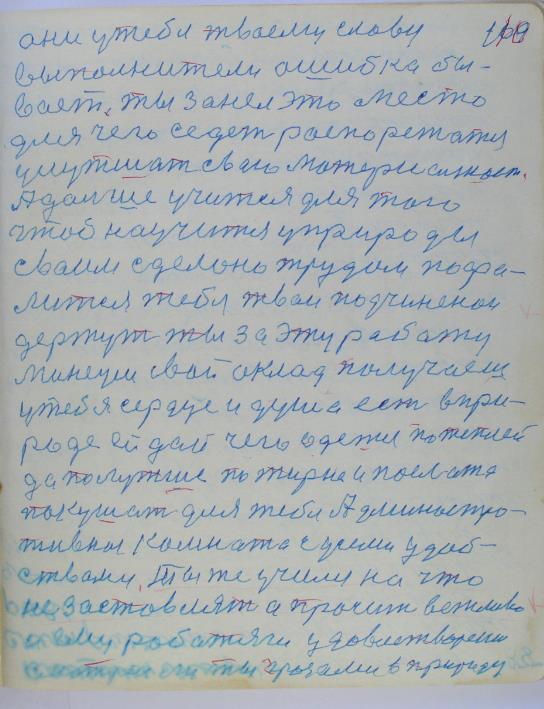 они утебя твоему слову 119
выполнители ошибка бы-
вает, ты занел это место
для чего седет роспорежатся
улутшат сваго Матери
Адальше учится для того
чтоб научится уприроды
своим сделоно трудом пофа-
лится тебя твои подчиненои
держут ты За Эту работу
Минеуш свой оклад получаеш
утебя сердце и душа ест впри-
роде ей дай чего одежи потеплей
да полутшие пожирне и послаже
покушат для тебя Админостро-
тивноя Комната свсеми удоб-
ствами. Ты же учили на что
незастовлят а прочит вежливо
а ему работяги удовлетворени
ты грозами в природу